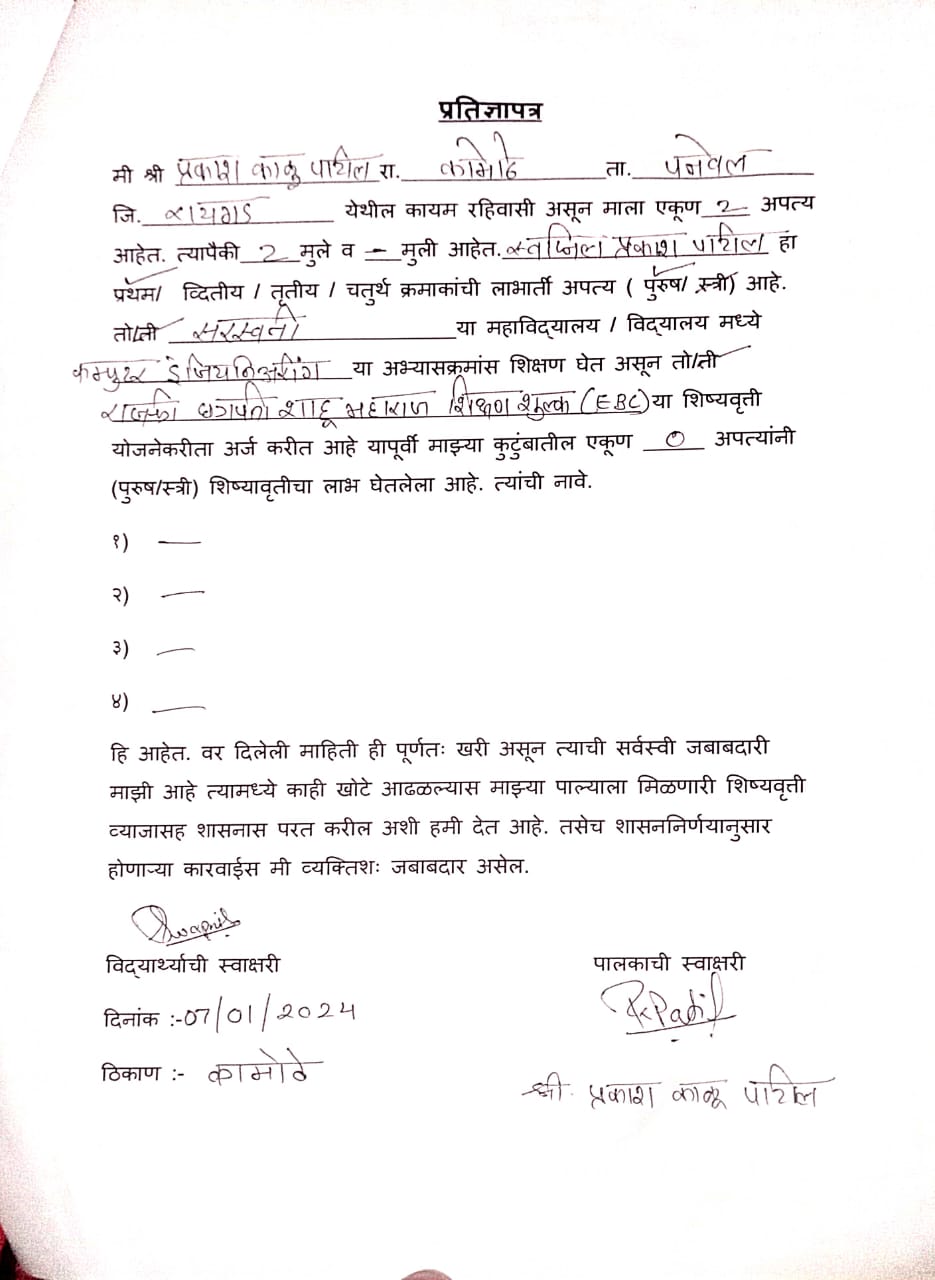 प्रतिज्ञापत्र
मी श्री प्रकाश काळू पाटील रा. कामोठे ता. पनवेल
जि. रायगड येथील कायम रहिवासी असून माला एकूण 2 अपत्य
आहेत. त्यापैकी 2 मुले व – मुली आहेत. स्वप्निल प्रकाश पाटील हा
प्रथम/ व्दितीय / तृतीय / चतुर्थ क्रमाकांची लाभार्ती अपत्य ( पुरुष/ स्त्री) आहे.
तो/ती सरस्वती या महाविद्यालय / विद्यालय मध्ये
कम्प्युटर इंजियनिअरींग या अभ्यासक्रमांस शिक्षण घेत असून तो/ती
राजर्षी छत्रपती शाहू महाराज शिक्षण शुल्क (EBC) या शिष्यवृती
योजनेकरीता अर्ज करीत आहे यापूर्वी माझ्या कुटुंबातील एकूण 0 अपत्यांनी
(पुरुष/स्त्री) शिष्यावृतीचा लाभ घेतलेला आहे. त्यांची नावे.
१) —
२) —
३) —
४) —
हि आहेत. वर दिलेली माहिती ही पूर्णतः खरी असून त्याची सर्वस्वी जबाबदारी
माझी आहे त्यामध्ये काही खोटे आढळल्यास माझ्या पाल्याला मिळणारी शिष्यवृत्ती
व्याजासह शासनास परत करील अशी हमी देत आहे. तसेच शासननिर्णयानुसार
होणाऱ्या कारवाईस मी व्यक्तिशः जबाबदार असेल.
Swapnil
विद्यार्थ्याची स्वाक्षरी पालकाची स्वाक्षरी
दिनांक :-07/01/2024 PKPatil
ठिकाण :- कामोठे
श्री. प्रकाश काळू पाटील